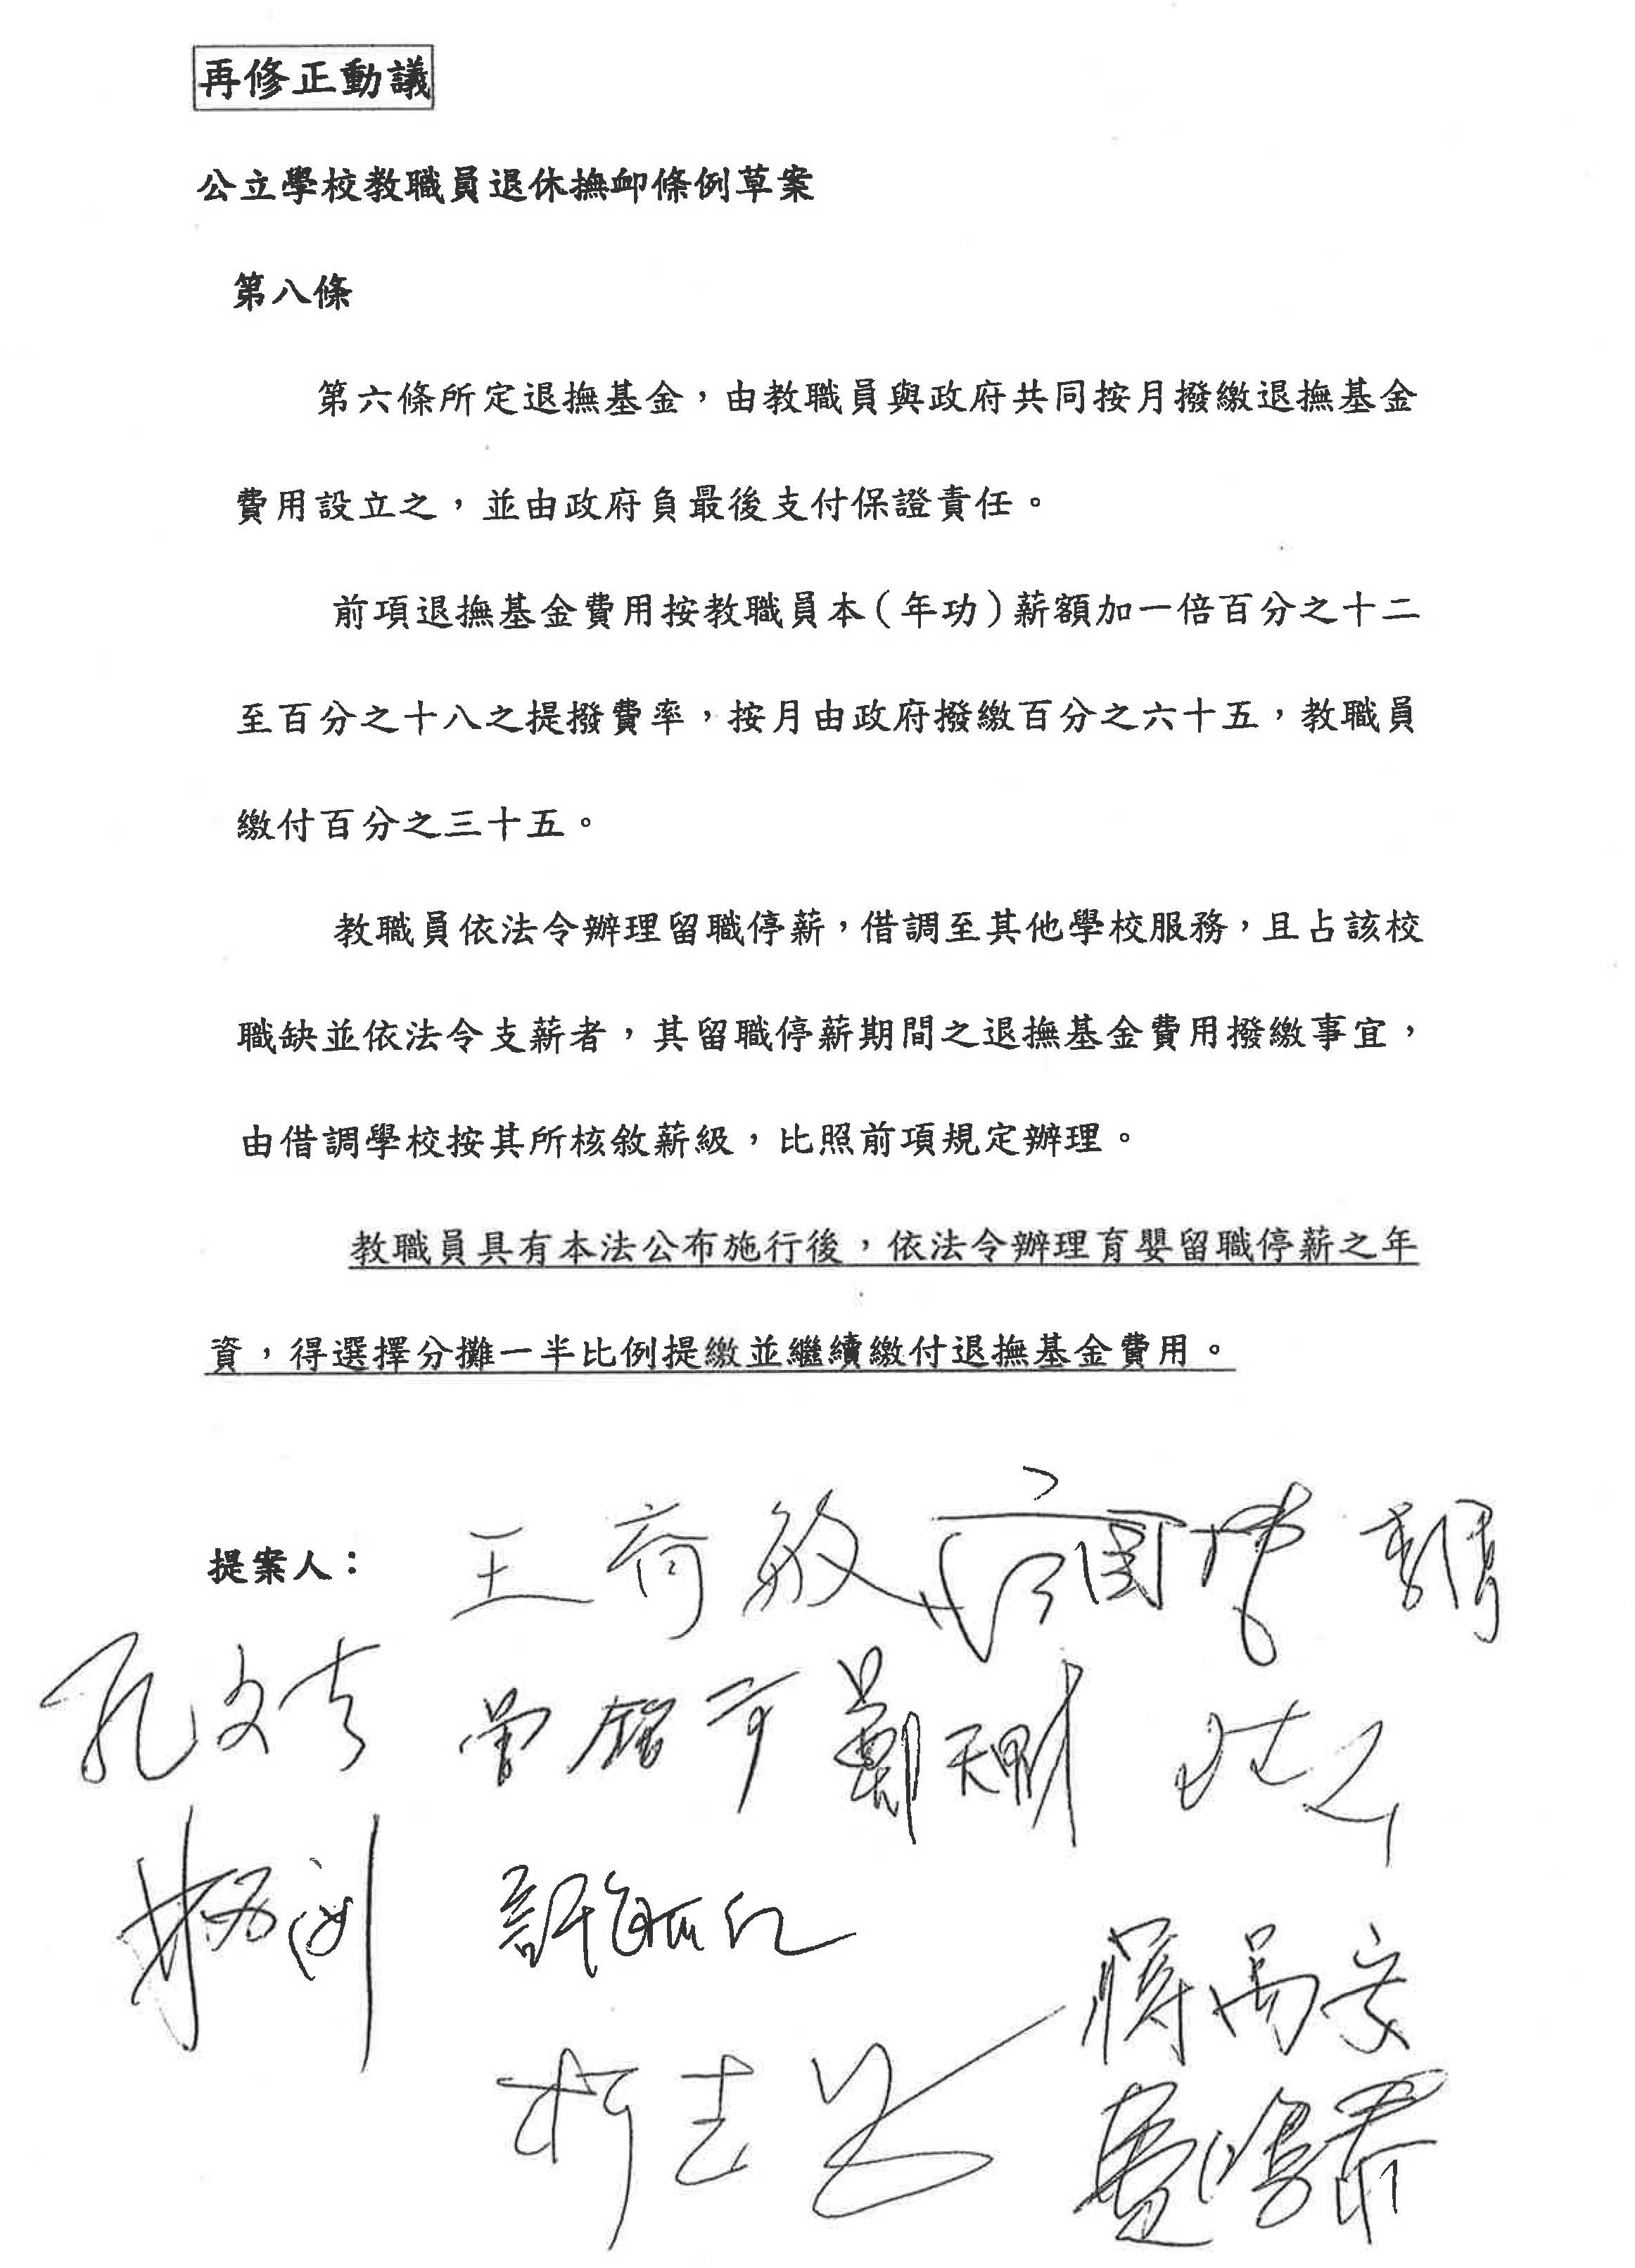 再修正動議
公立學校教職員退休撫卹條例草案
第八條
第六條所定退撫基金，由教職員與政府共同按月撥繳退撫基金
費用設立之，並由政府負最後支付保證責任。
前項退撫基金費用按教職員本（年功）薪額加一倍百分之十二
至百分之十八之提撥費率，按月由政府撥繳百分之六十五，教職員
繳付百分之三十五。
教職員依法令辦理留職停薪，借調至其他學校服務，且占該校
職缺並依法令支薪者，其留職停薪期間之退撫基金費用撥繳事宜，
由借調學校按其所核敘薪級，比照前項規定辦理。
教職員具有本法公布施行後，依法令辦理育嬰留職停薪之年
資，得選擇分攤一半比例提繳並繼續繳付退撫基金費用。
提案人：
孔文吉 曾銘宗 鄭天財
許毓仁
蔣萬安
柯志恩